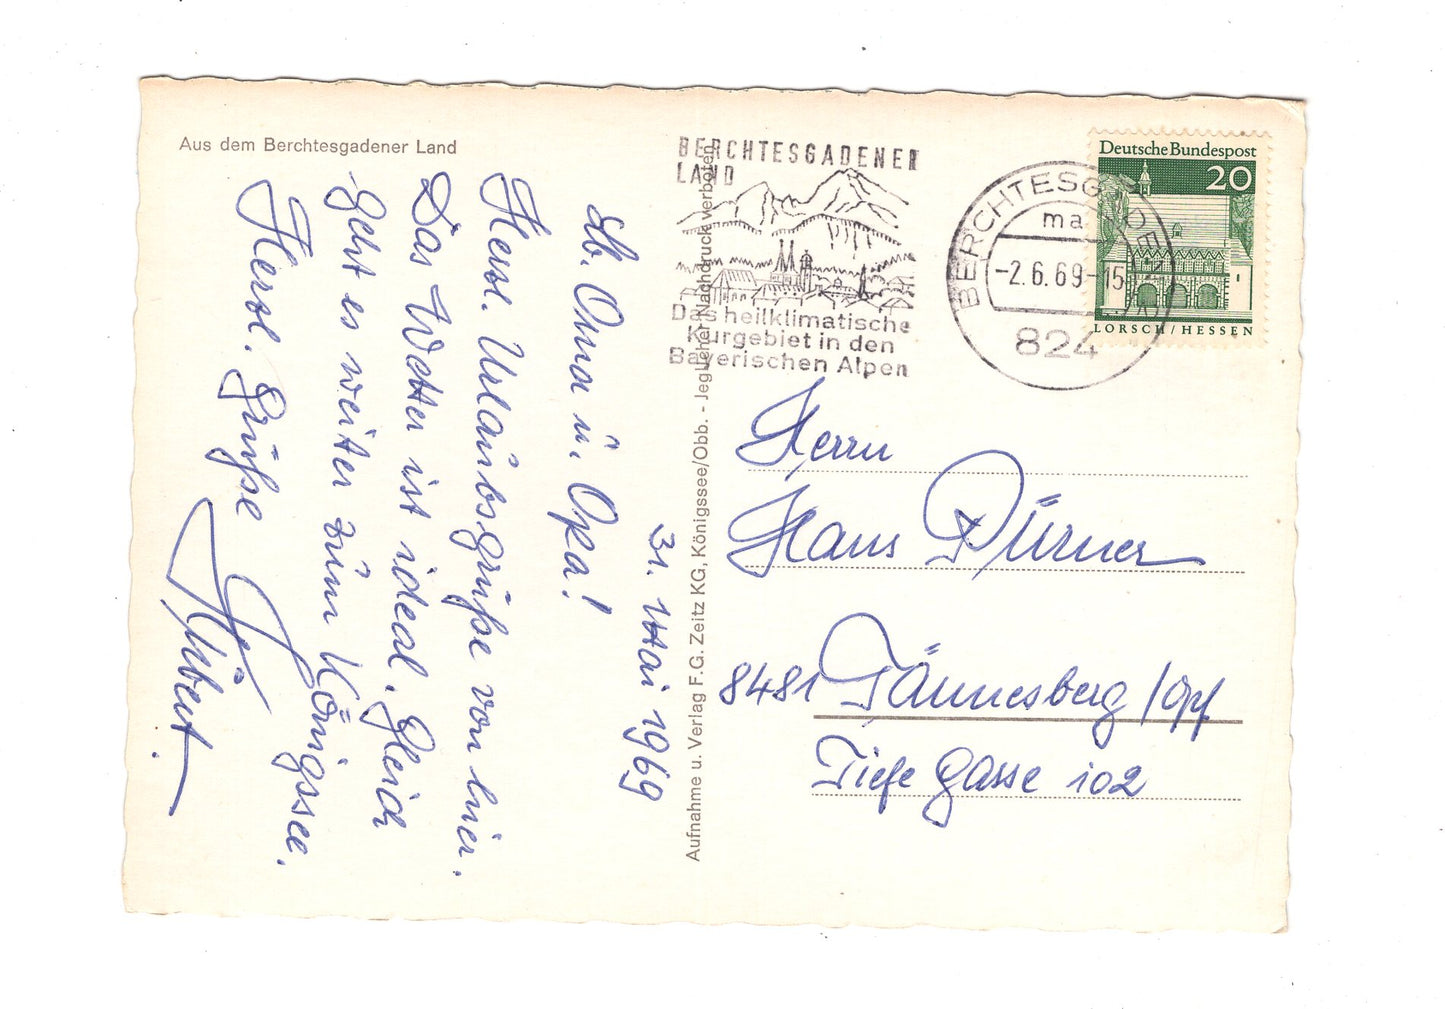 Aus dem Berchtesgadener Land
31. Mai 1969
Lb. Oma u. Opa!
Herzl. Urlaubsgrüße von hier.
Das Wetter ist ideal. Gleich
geht es weiter zum Königssee.
Herzl. Grüße
Hubert.
Aufnahme u. Verlag F.G. Zeitz KG, Königssee/Obb. - Jeglicher Nachdruck verboten
BERCHTESGADENER
LAND
Das heilklimatische
Kurgebiet in den
Bayerischen Alpen
BERCHTESGADEN
ma
-2.6.69-15
824
Deutsche Bundespost
20
LORSCH/HESSEN
Herrn
Hans Dürner
8481 Tännesberg/Opf
Tiefe Gasse 102